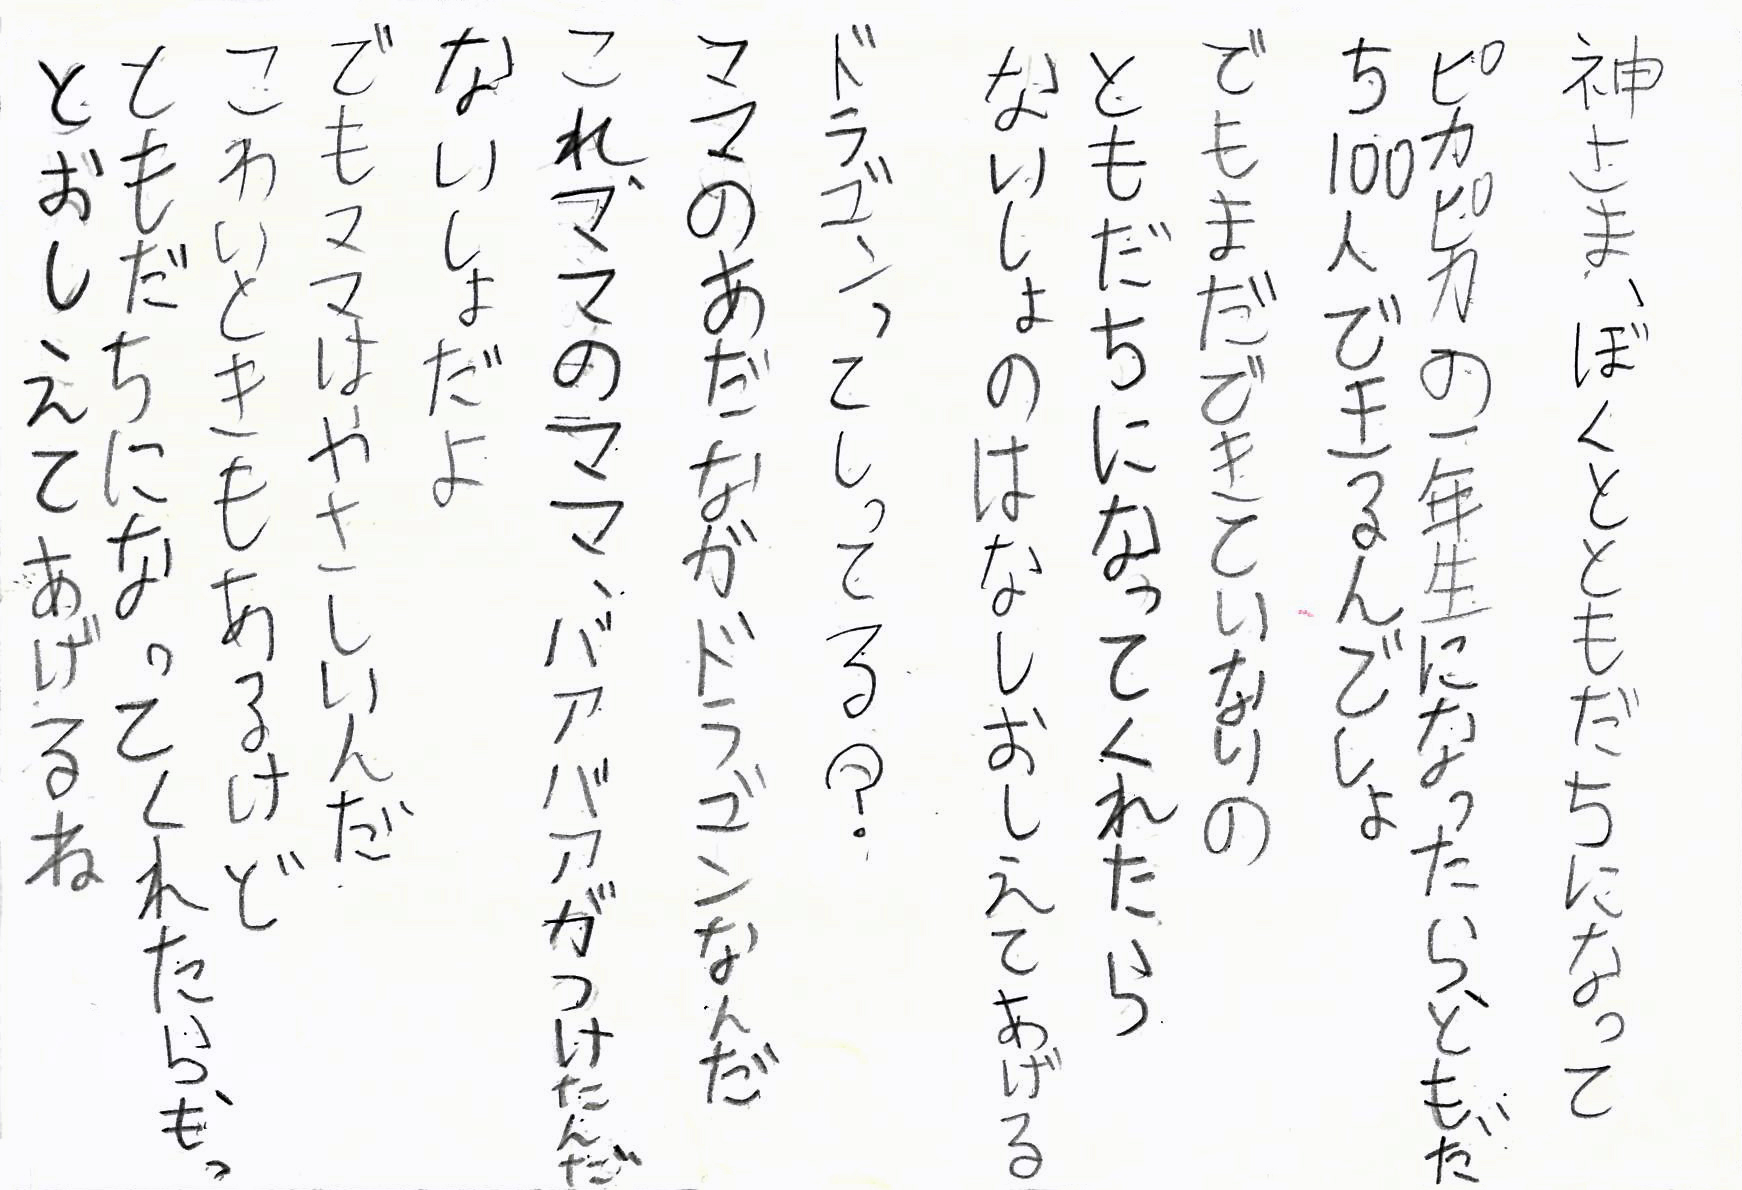 神さま、ぼくとともだちになって
ピカピカの一年生になったら、ともだ
ち100人できるんでしょ
でもまだできていないの
ともだちになってくれたら
ないしょのはなしおしえてあげる
ドラゴンってしってる?
ママのあだながドラゴンなんだ
これママのママ、バアバアがつけたんだ
ないしょだよ
でもママはやさしいんだ
こわいときもあるけど
ともだちになってくれたら、もっ
とおしえてあげるね